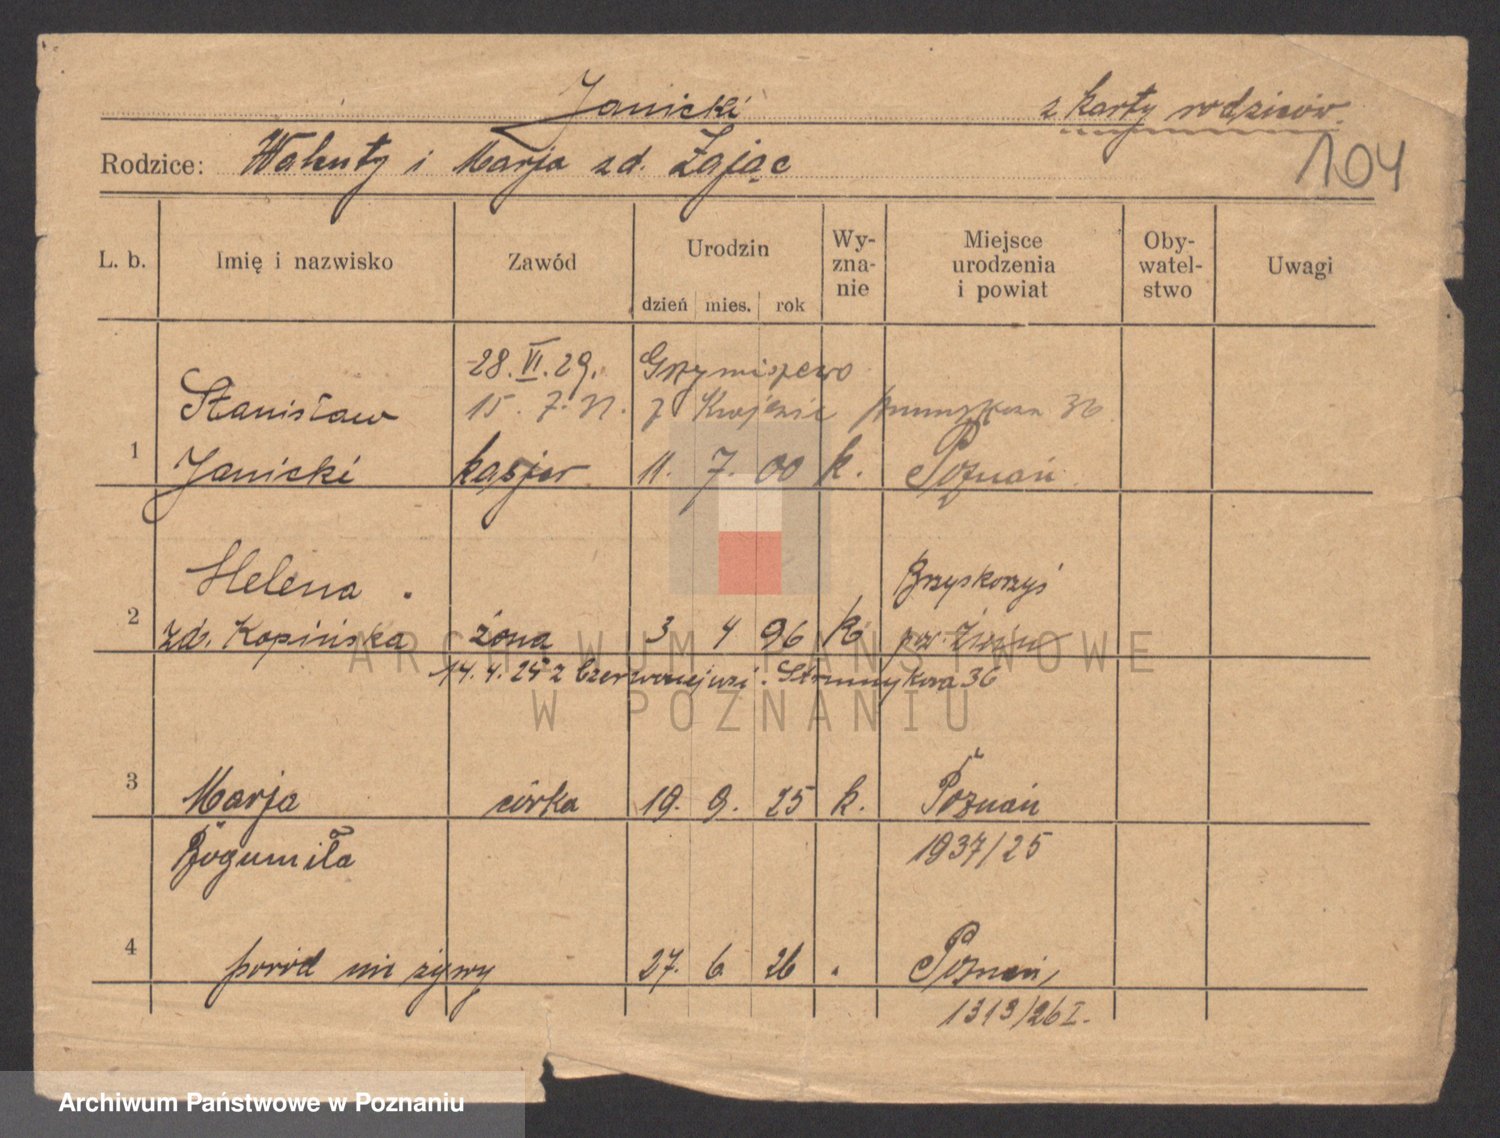 Janicki z karty rodziców
Rodzice: Walenty i Marja zd. Zając
104
L. b. Imię i nazwisko Zawód Urodzin dzień mies. rok Wy-zna-nie Miejsce urodzenia i powiat Oby-watel-stwo Uwagi
28.VI.29. Grzymiszewo
Stanisław 15. 7. 31. z Krojezie Strumykowa 36
1 Janicki kasjer 11. 7. 00 k. Poznań
Helena Brzyskorzyś
2 zd. Kopińska żona 3 4 96 k pow. Żnin
14. 4. 25 z Czerwonejwsi. Strumykowa 36
3 Marja córka 19. 9. 25 k. Poznań
Bogumiła 1937/25
4 poród nie żywy 27. 6. 26 Poznań,
1313/26 I.
ARCHIWUM PAŃSTWOWE
W POZNANIU
Archiwum Państwowe w Poznaniu